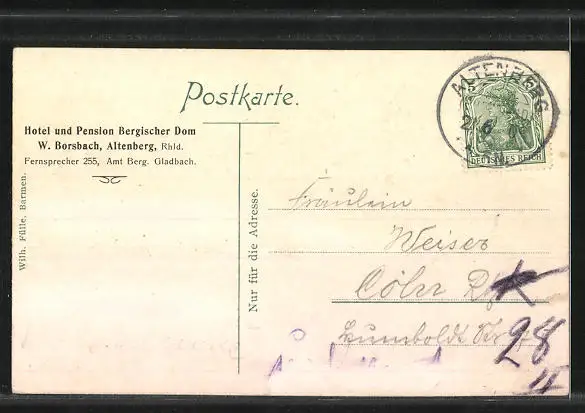 Postkarte.
Hotel und Pension Bergischer Dom
W. Borsbach, Altenberg, Rhld.
Fernsprecher 255, Amt Berg. Gladbach.
Wilh. Fülle. Barmen.
Nur für die Adresse.
ALTENBERG
DEUTSCHES REICH
Fräulein
Weiser
Cöln
Humboldt Str
28
II